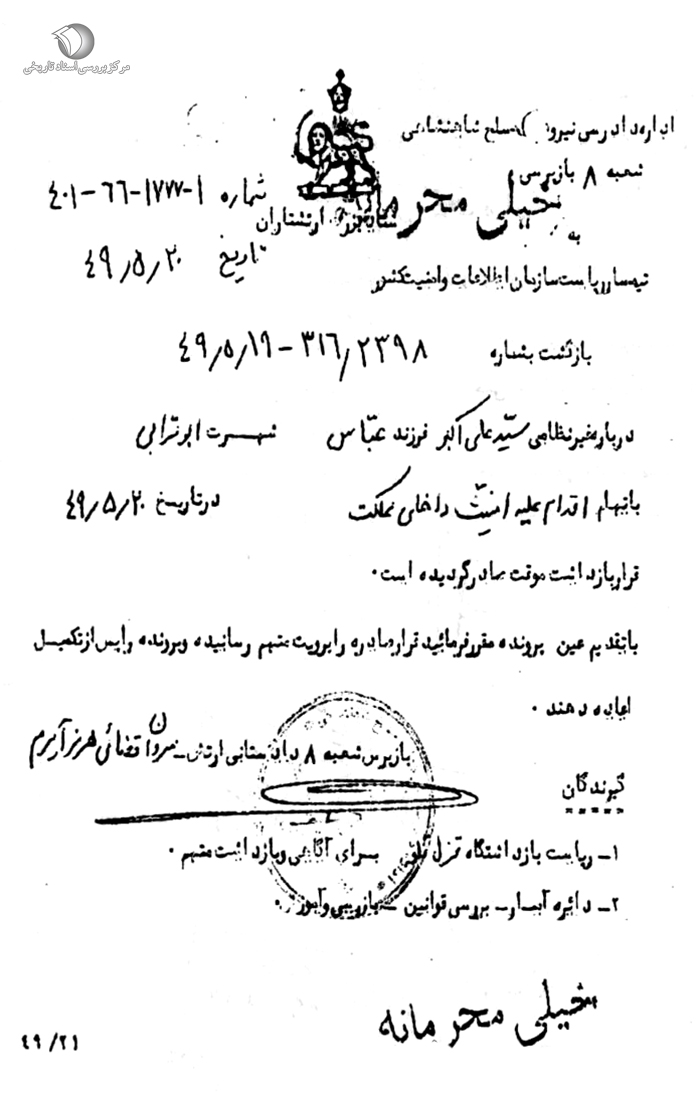 مرکز بررسی اسناد تاریخی
اداره دادرسی نیروهای مسلح شاهنشاهی
شعبه ۸ بازپرسی
شماره ۱-۱۷۷۷-۶۶-۴۰۱
خیلی محرمانه
ستاد بزرگ ارتشتاران
به
تاریخ ۴۹/۵/۲۰
تیمسار ریاست سازمان اطلاعات و امنیت کشور
بازگشت بشماره ۳۱۶/۲۳۹۸ - ۴۹/۵/۱۹
درباره غیرنظامی سیّد علی اکبر فرزند عبّاس شهرت ابوترابی
باتهام اقدام علیه امنیّت داخلی مملکت در تاریخ ۴۹/۵/۲۰
قرار بازداشت موقت صادر گردیده است .
با تقدیم عین پرونده مقرر فرمائید قرار صادره را برویت متهم رسانیده و پرونده را پس از تکمیل
اعاده دهند .
بازپرس شعبه ۸ دادستانی ارتش - سروان قضائی هرمز آرزم
گیرندگان
۱- ریاست بازداشتگاه قزل قلعه برای آگاهی و بازداشت متهم .
۲- دائره آمار - بررسی قوانین - بازرسی و آموزش .
خیلی محرمانه
۴۹/۲۱